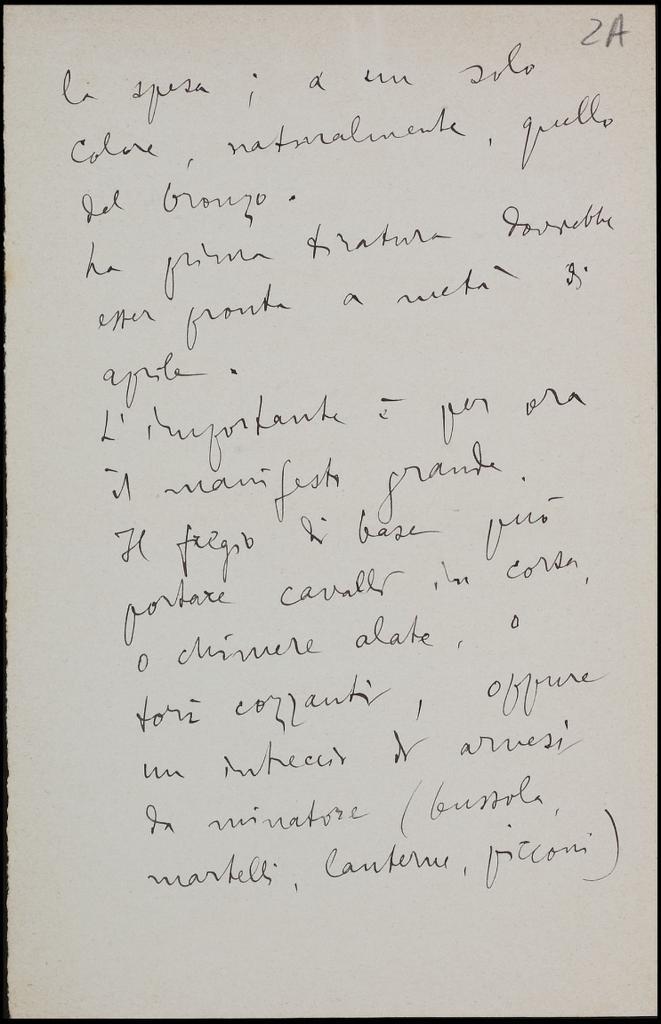 2A
la spesa ; a un solo
colore, naturalmente, quello
del bronzo.
La prima tiratura dovrebbe
esser pronta a metà di
aprile.
L'importante è per ora
il manifesto grande.
Il fregio di base può
portare cavalli in corsa,
o chimere alate, o
tori cozzanti, oppure
un intreccio di arnesi
da minatore (bussola,
martelli, lanterne, picconi)